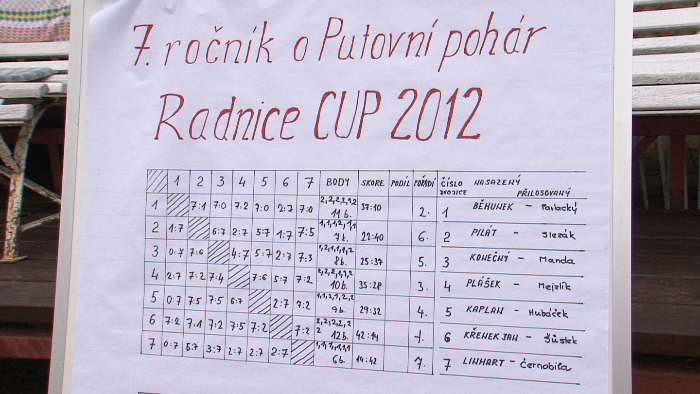 7. ročník o Putovní pohár
Radnice CUP 2012
1 2 3 4 5 6 7 BODY SKORE PODÍL POŘADÍ ČÍSLO DVOJICE NASAZENÝ PŘILOSOVANÝ
1 7:1 7:0 7:2 7:0 2:7 7:0 2,2,2,2,1,2 11 b. 37:10 2. 1 BĚHUNEK – Palacký
2 1:7 6:7 2:7 5:7 1:7 7:5 7b. 22:40 6. 2 PILÁT – Slezák
3 0:7 7:6 4:7 5:7 2:7 7:3 1,2,1,1,1,2 8b. 25:37 5. 3 KONEČNÝ – Manda
4 2:7 7:2 7:4 7:6 5:7 7:2 10b. 35:28 3. 4 PLÁŠEK – Mejzlík
5 0:7 7:5 7:5 6:7 2:7 7:2 1,2,2,1,1,2 9b. 29:32 4. 5 KAPLAN – Hubáček
6 7:2 7:1 7:2 7:5 7:2 7:2 2,2,2,2,2, 2 12b. 42:14 1. 6 KŘENEK JAN – Šůstek
7 0:7 5:7 3:7 2:7 2:7 2:7 1,1,1,1,1,1 6b. 14:42 7. 7 LINHART – Černobila